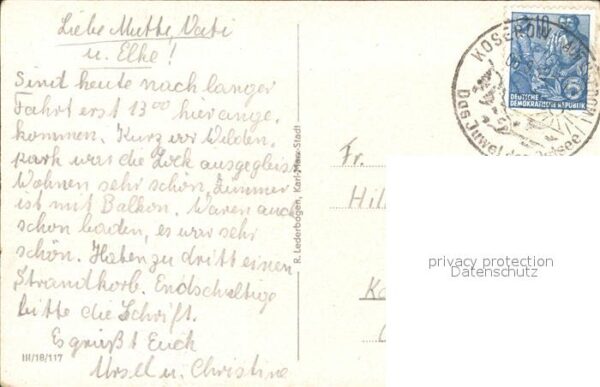 Liebe Mutti, Vati
u. Elke!
Sind heute nach langer
Fahrt erst 13 00 hier ange,
kommen. Kurz vor Wilden,
park war die Lok ausgegleist
Wohnen sehr schön, Zimmer
ist mit Balkon. Waren auch
schon baden, es war sehr
schön. Haben zu dritt einen
Strandkorb. Endschultige
bitte die Schrift.
Es grüßt Euch
Ursel u. Christine
III/18/117
R. Lederbogen, Karl-Marx-Stadt
KOSEROW
Das Juwel der Ostsee
10
DEUTSCHE
DEMOKRATISCHE REPUBLIK
5
Fr.
Hil
privacy protection
Datenschutz